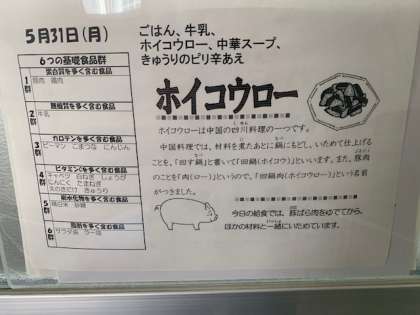 5月31日(月)
ごはん、牛乳、
ホイコウロー、中華スープ、
きゅうりのピリ辛あえ
6つの基礎食品群
蛋白質を多く含む食品
1群
豚肉 鶏肉
無機質を多く含む食品
2群
牛乳
カロテンを多く含む食品
3群
ピーマン こまつな にんじん
ビタミンCを多く含む食品
4群
キャベツ 白ねぎ しょうが
にんにく たまねぎ
きゅうり
炭水化物を多く含む食品
5群
精白米 砂糖
脂肪を多く含む食品
6群
サラダ油 ラー油
ホイコウロー
ホイコウローは中国の四川料理の一つです。
中国料理では、材料を煮たあとに鍋にもどし、いためて仕上げる
ことを、「回す鍋」と書いて「回鍋(ホイコウ)」といいます。また、豚肉
のことを「肉(ロー)」というので、「回鍋肉(ホイコウロー)」という名前
がつきました。
今日の給食では、豚ばら肉をゆでてから、
ほかの材料と一緒にいためています。